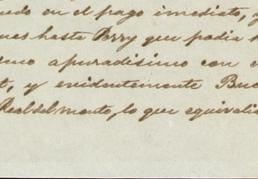 en el pago imediato,
hasta Perry que podia
apuradisimo con
y evidentemente Buc
Real del monte, lo que equivalia